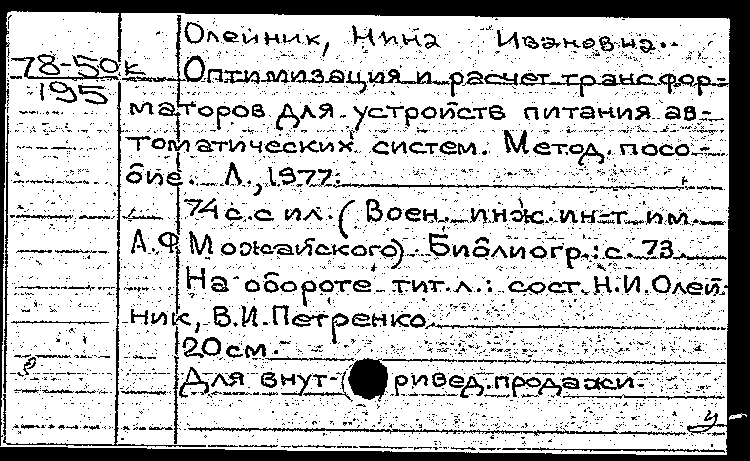 Олейник, Нина Ивановна.
78-50к
195
Оптимизация и расчет трансфор-
маторов для устройств питания ав-
томатических систем. Метод. посо-
бие. Л., 1977.
74 с. с ил. (Воен. инж. ин-т им.
А.Ф Можайского). Библиогр.: с. 73.
На обороте тит. л.: сост. Н.И.Олей-
ник, В.И.Петренко.
20 см.
Для внут- ривед. продажи.